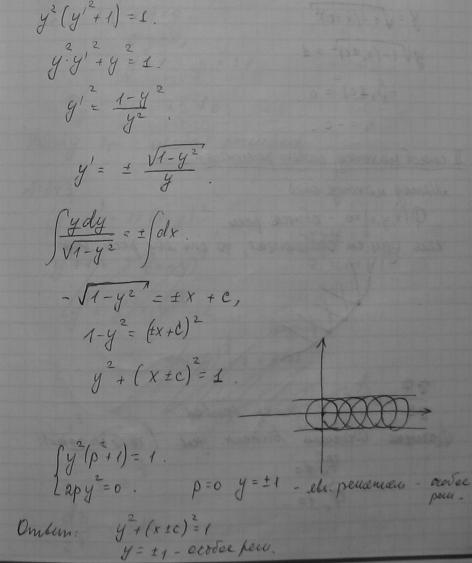 y²(y'²+1)=1.
y²·y'²+y²=1.
y'²= (1-y²)/y²
y'= ± √(1-y²)/y.
∫ ydy/√(1-y²) = ±∫dx.
-√(1-y²) = ±x+c,
1-y²=(±x+c)²
y²+(x±c)²=1.
{ y²(p²+1)=1.
{ 2py²=0. p=0 y=±1 - явл. решением - особое реш.
Ответ: y²+(x±c)²=1
y=±1 - особое реш.